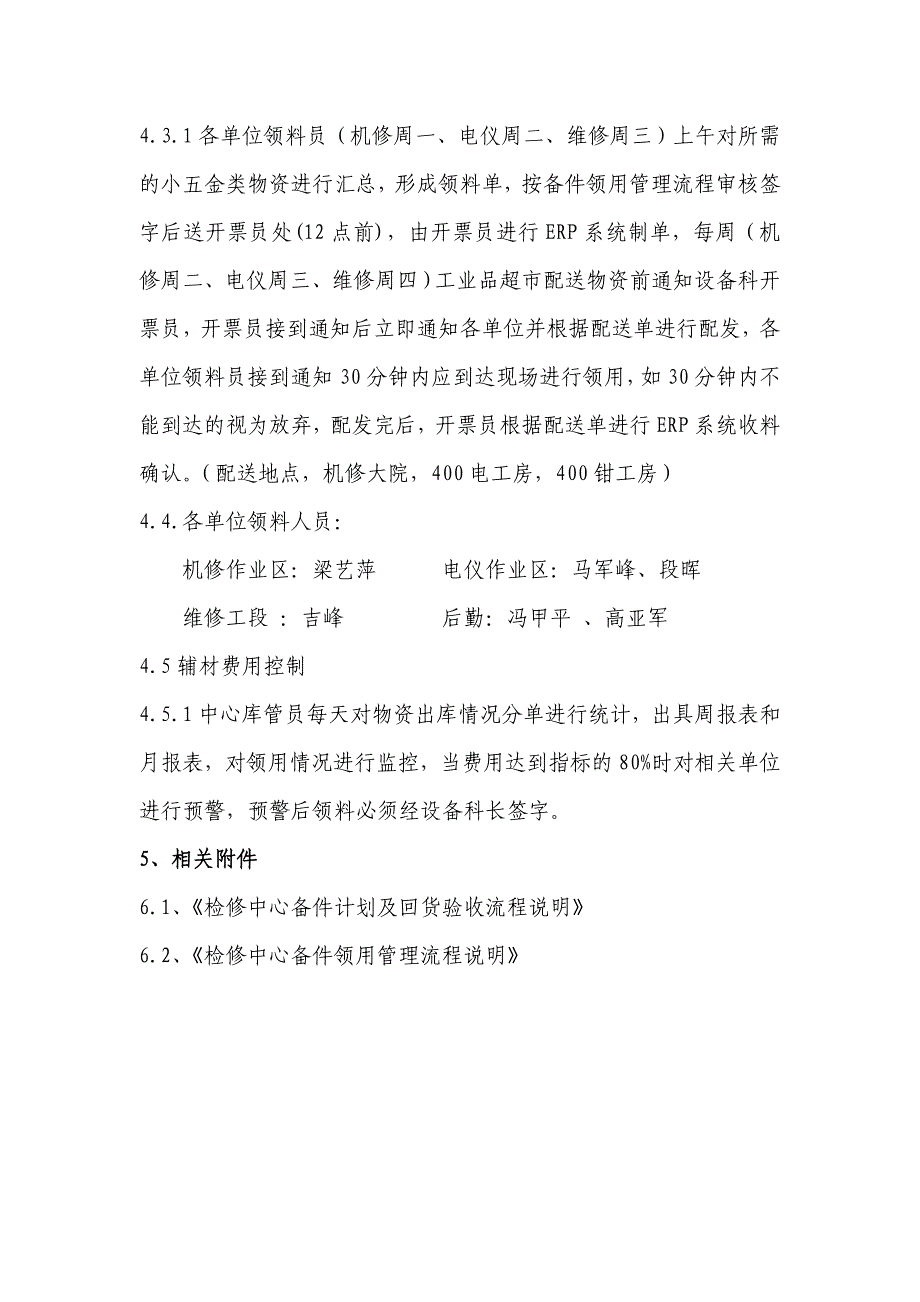 4.3.1 各单位领料员（机修周一、电仪周二、维修周三）上午对所需
的小五金类物资进行汇总，形成领料单，按备件领用管理流程审核签
字后送开票员处(12 点前)，由开票员进行 ERP 系统制单，每周（机
修周二、电仪周三、维修周四）工业品超市配送物资前通知设备科开
票员，开票员接到通知后立即通知各单位并根据配送单进行配发，各
单位领料员接到通知 30 分钟内应到达现场进行领用，如 30 分钟内不
能到达的视为放弃，配发完后，开票员根据配送单进行 ERP 系统收料
确认。（配送地点，机修大院，400 电工房，400 钳工房）
4.4.各单位领料人员：
机修作业区：梁艺萍 电仪作业区：马军峰、段晖
维修工段 ：吉峰 后勤：冯甲平 、高亚军
4.5 辅材费用控制
4.5.1 中心库管员每天对物资出库情况分单进行统计，出具周报表和
月报表，对领用情况进行监控，当费用达到指标的 80%时对相关单位
进行预警，预警后领料必须经设备科长签字。
5、相关附件
6.1、《检修中心备件计划及回货验收流程说明》
6.2、《检修中心备件领用管理流程说明》